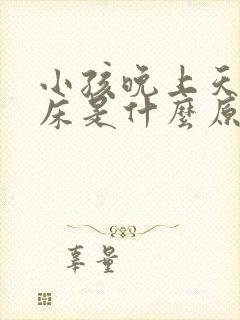 小孩晚上天
床是什麼原
辜量